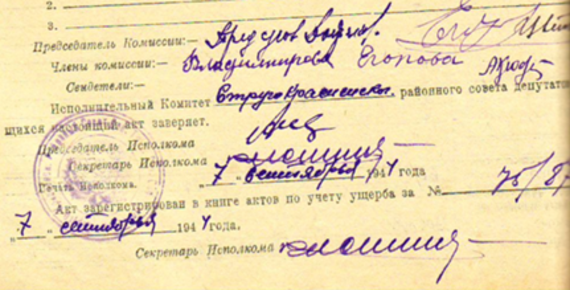 2.
3.
Председатель Комиссии:—
Члены комиссии:— Владимирова Егорова
Свидетели:—
Исполнительный Комитет Стругокрасненск. районного совета депутатов
щихся настоящий акт заверяет.
Председатель Исполкома
Секретарь Исполкома
Печать Исполкома. „7 сентября 1944 года
Акт зарегистрирован в книге актов по учету ущерба за № 75/87
„7" сентября 1944 года.
Секретарь Исполкома